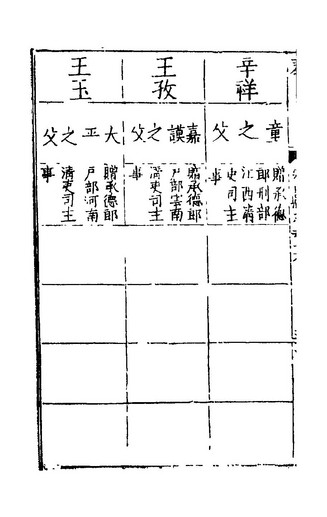 辛祥
童之父
贈承德
郎刑部
江西清
吏司主
事
王孜
嘉謨之父
贈承德郎
戸部雲南
清吏司主
事
王玉
大正之父
贈承德郎
戸部河南
清吏司主
事